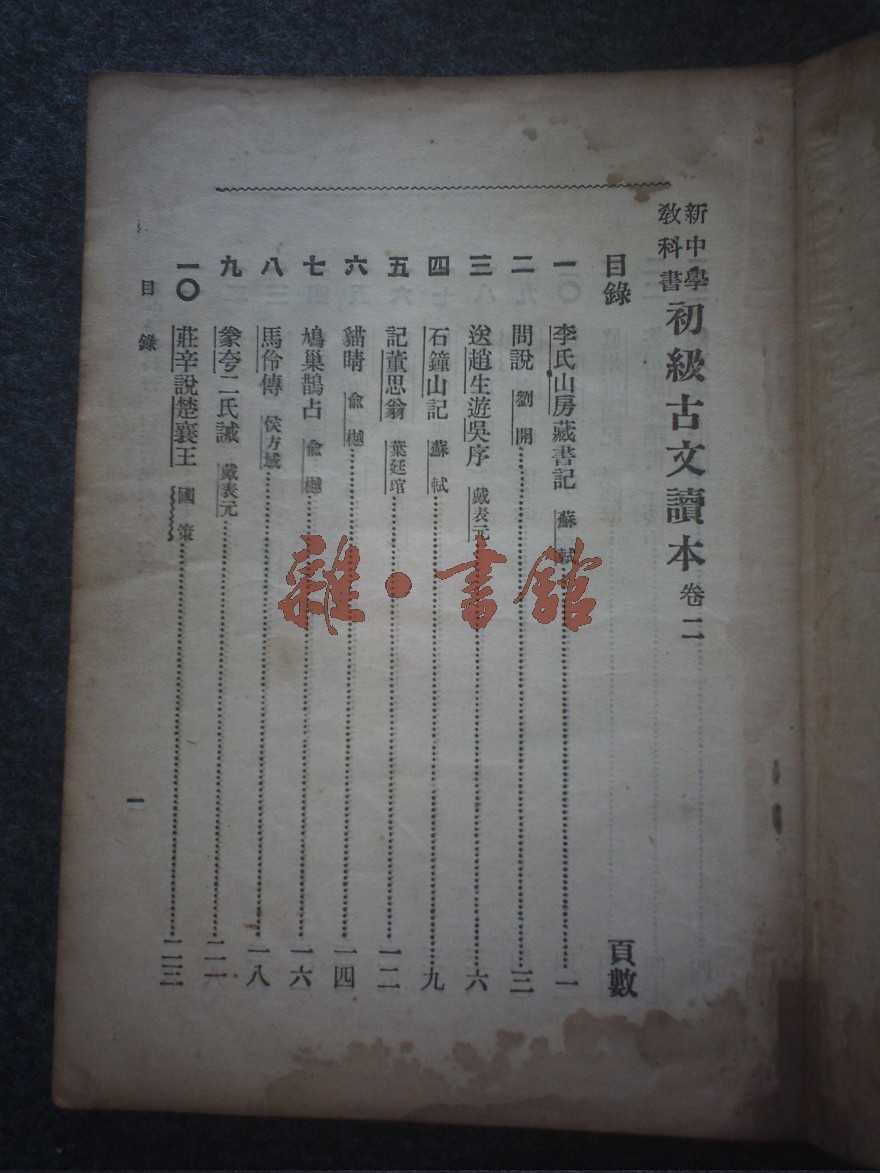 新中學
教科書
初級古文讀本 卷二
目錄 頁數
一 李氏山房藏書記 蘇軾 一
二 問說 劉開 三
三 送趙生遊吳序 戴表元 六
四 石鐘山記 蘇軾 九
五 記董思翁 葉廷琯 一二
六 貓睛 俞樾 一四
七 鳩巢鵲占 俞樾 一六
八 馬伶傳 侯方域 一八
九 彖夸二氏誡 戴表元 二一
一〇 莊辛說楚襄王 國策 二三
目錄
一
雜·書館